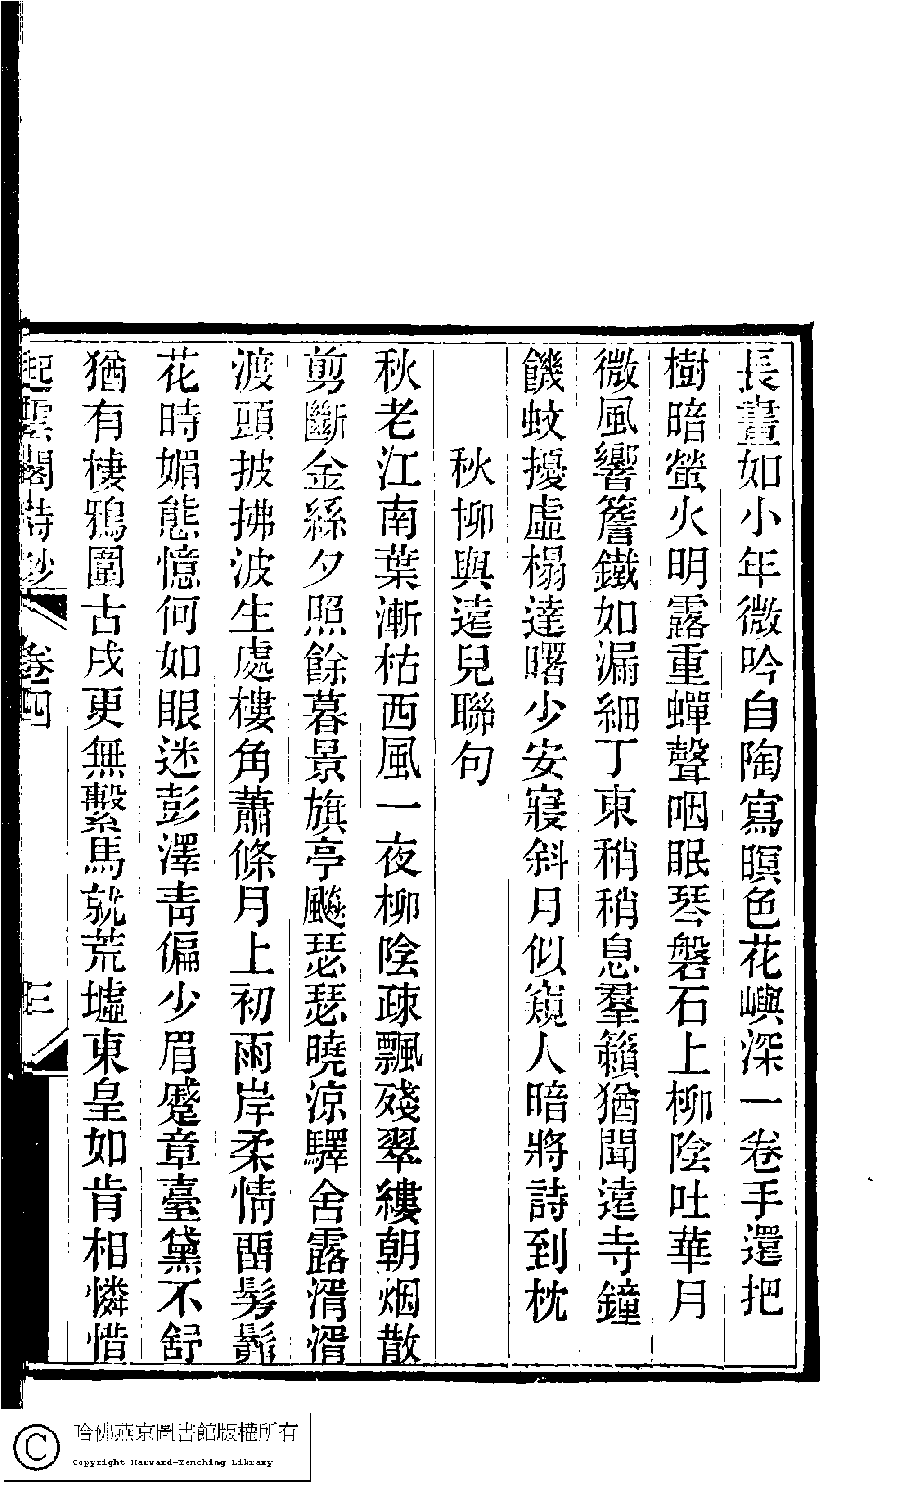 長晝如小年微吟自陶寫暝色花嶼深一卷手還把
樹暗螢火明露重蟬聲咽眠琴磐石上柳陰吐華月
微風響簷鐵如漏細丁東稍稍息羣籟猶聞遠寺鐘
饑蚊擾虛榻達曙少安寢斜月似窺人暗將詩到枕
秋柳與遠兒聯句
秋老江南葉漸枯西風一夜柳陰疎飄殘翠縷朝烟散
剪斷金絲夕照餘暮景旗亭颭瑟瑟曉涼驛舍露湑湑
渡頭披拂波生處樓角蕭條月上初雨岸柔情畱髣髴
花時媚態憶何如眼迷彭澤靑偏少眉蹙章臺黛不舒
猶有棲鴉圍古戍更無繫馬就荒墟東皇如肯相憐惜
起雲閣詩鈔 卷四 三
哈佛燕京圖書館版權所有
Copyright Harvard-Yenching Library